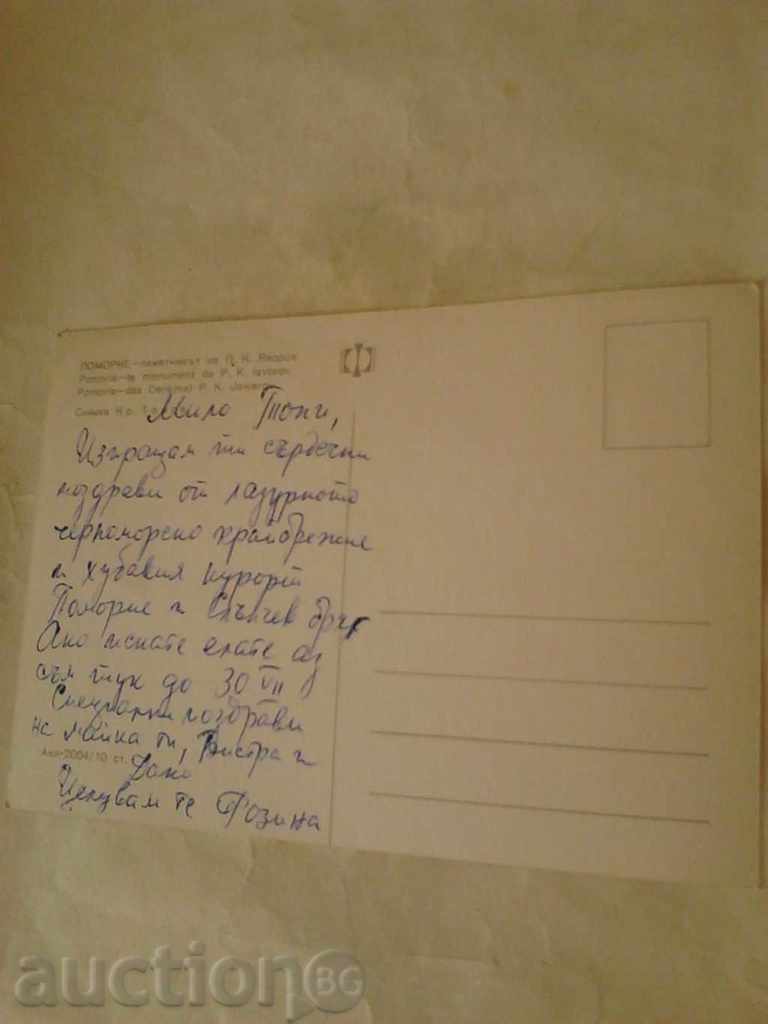 ПОМОРИЕ — паметникът на П. К. Яворов
Pomorie — le monument de P. K. Iavorov
Pomorie — das Denkmal P. K. Jaworow
Снимка
Мило Тони,
Изпращам ти сърдечни
поздрави от лазурното
черноморско крайбрежие
и хубавия курорт
Поморие и Слънчев бряг
Ако искате елате аз
съм тук до 30 VII
Специални поздрави
на майка ти, Бистра и
Дако
Акл-2004/10 ст.
Целувам те Розина
auctionBG